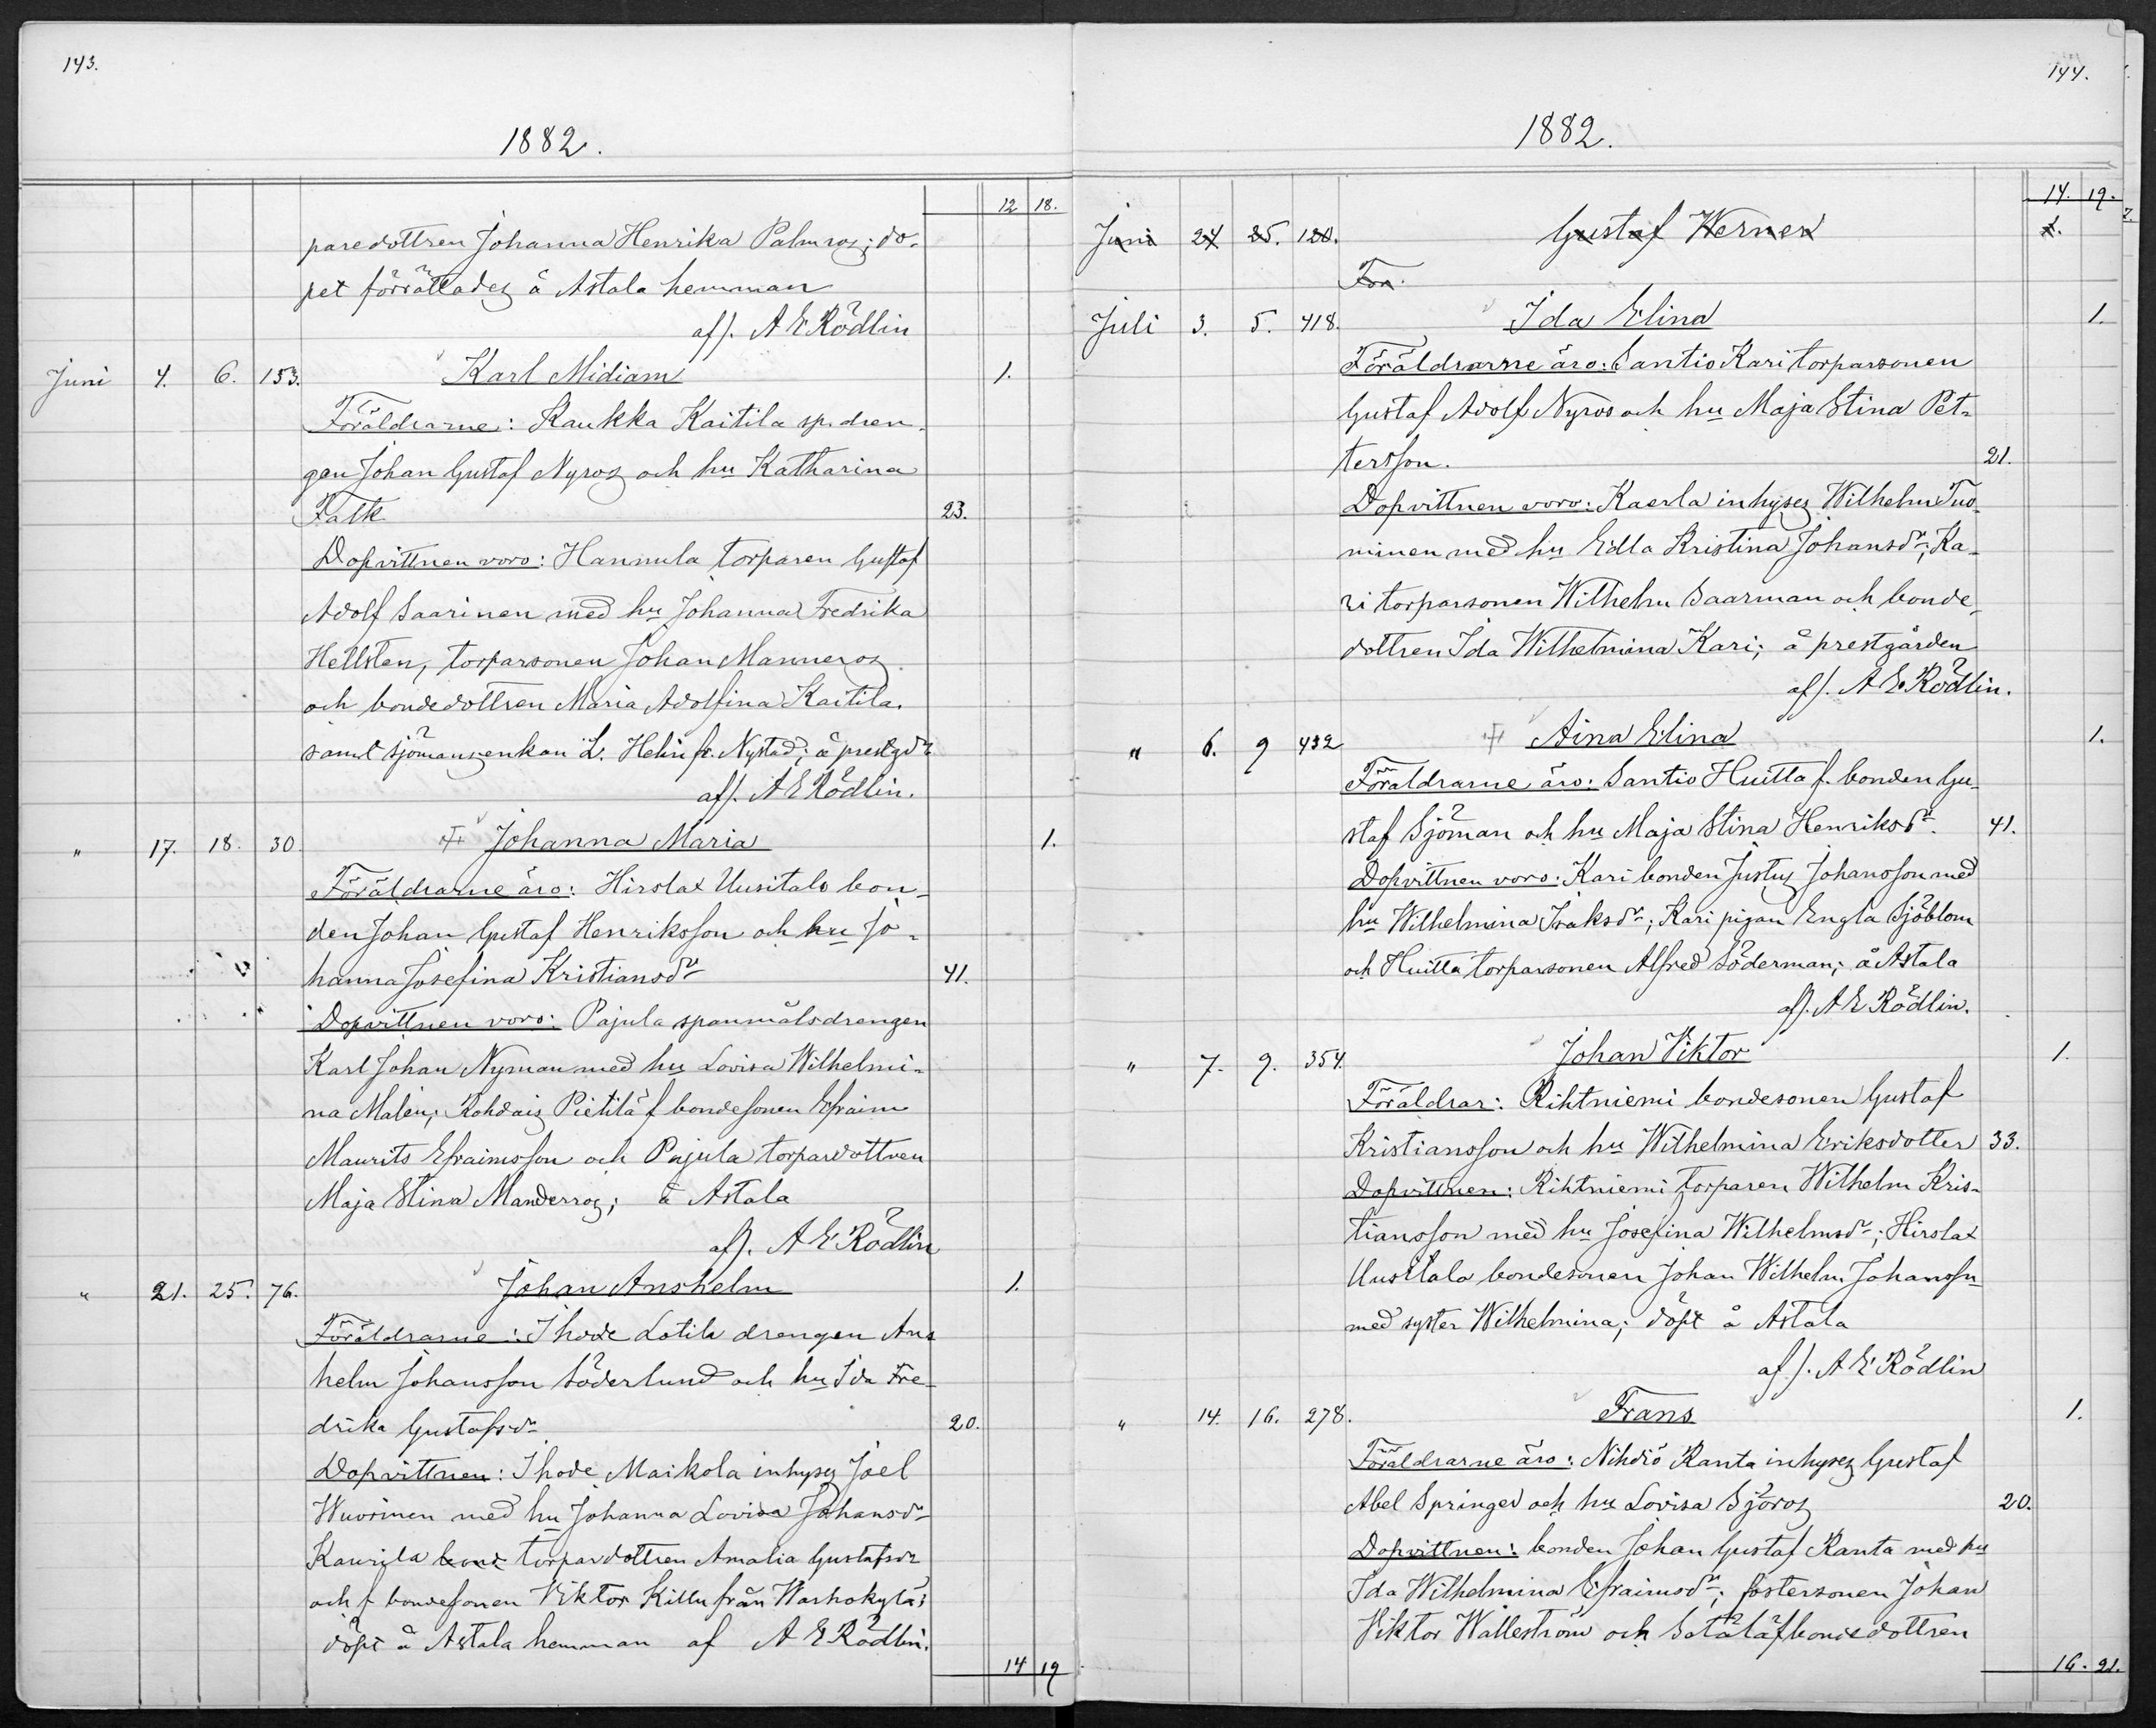 143.
1882.
12 18.
paredottren Johanna Henrika Palmros; do-
pet förrättades å Astala hemman
af J. A E Rödlin
Juni 4. 6. 153. Karl Midiam 1.
Föräldrarne: Kaukka Kaitila sp. dren-
gen Johan Gustaf Nyros och hu Katharina
Falk 23.
Dopvittnen voro: Hannula torparen Gustaf
Adolf Saarinen med hu Johanna Fredrika
Hellsten, torparsonen Johan Manneros
och bondedottren Maria Adolfina Kaitila.
samt sjömansenkan L. Helin fr. Nystad; å prestgdn
af J. A E Rödlin.
" 17. 18. 30. Johanna Maria 1.
Föräldrarne äro: Hirslax Uusitalo bon-
den Johan Gustaf Henriksson och hu Jo-
hanna Josefina Kristiansdr 41.
Dopvittnen voro: Pajula spanmålsdrengen
Karl Johan Nyman med hu Lovisa Wilhelmi-
na Malin; Rohdais Pietilä f bondesonen Efraim
Maurits Efraimsson och Pajula torparedottren
Maja Stina Manderros; å Astala
af J. A E Rödlin
" 21. 25. 76. Johan Anshelm 1.
Föräldrarne: Ihode Lotila drengen Ans
helm Johansson Söderlund och hu Ida Fre-
drika Gustafsdr 20.
Dopvittnen: Ihode Maikola inhyses Joel
Wuorinen med hu Johanna Lovisa Johansdr
Kaurila bond torpardottren Amalia Gustafsdr
och f bondesonen Viktor Killu från Warhokylä;
döpt å Astala hemman af A E Rödlin.
14 19
144.
1882.
14. 19.
Juni 24 25. 120. Gustaf Werner 1.
För
Juli 3. 5. 418. Ida Elina 1.
Föräldrarne äro: Santio Kari torparsonen
Gustaf Adolf Nyros och hu Maja Stina Pet-
tersson. 21.
Dopvittnen voro: Kaerla inhyses Wilhelm Tuo-
minen med hu Edla Kristina Johansdr; Ka-
ri torparsonen Wilhelm Saarman och bonde-
dottren Ida Wilhelmina Kari; å prestgården
af J. A E Rödlin.
" 6. 9 432 Aina Elina 1.
Föräldrarne äro: Santio Huitta f. bonden Gu-
staf Sjöman och hu Maja Stina Henriksdr. 41.
Dopvittnen voro: Kari bonden Justus Johansson med
hu Wilhelmina Isaksdr; Kari pigan Engla Sjöblom
och Huitta torparsonen Alfred Söderman; å Astala
af J. A E Rödlin.
" 7. 9. 354. Johan Viktor 1.
Föräldrar: Rihtniemi bondesonen Gustaf
Kristiansson och hu Wilhelmina Eriksdotter 33.
Dopvittnen: Rihtniemi torparen Wilhelm Kris-
tiansson med hu Josefina Wilhelmsdr; Hirslax
Uusitalo bondesonen Johan Wilhelm Johansson
med syster Wilhelmina; döpt å Astala
af J. A E Rödlin
" 14. 16. 278. Frans 1.
Föräldrarne äro: Nihdiö Ranta inhyses Gustaf
Abel Springer och hu Lovisa Sjöros 20.
Dopvittnen: bonden Johan Gustaf Ranta med hu
Ida Wilhelmina Efraimsdr; fostersonen Johan
Viktor Walleström och Satala f bondedottren
16. 21.